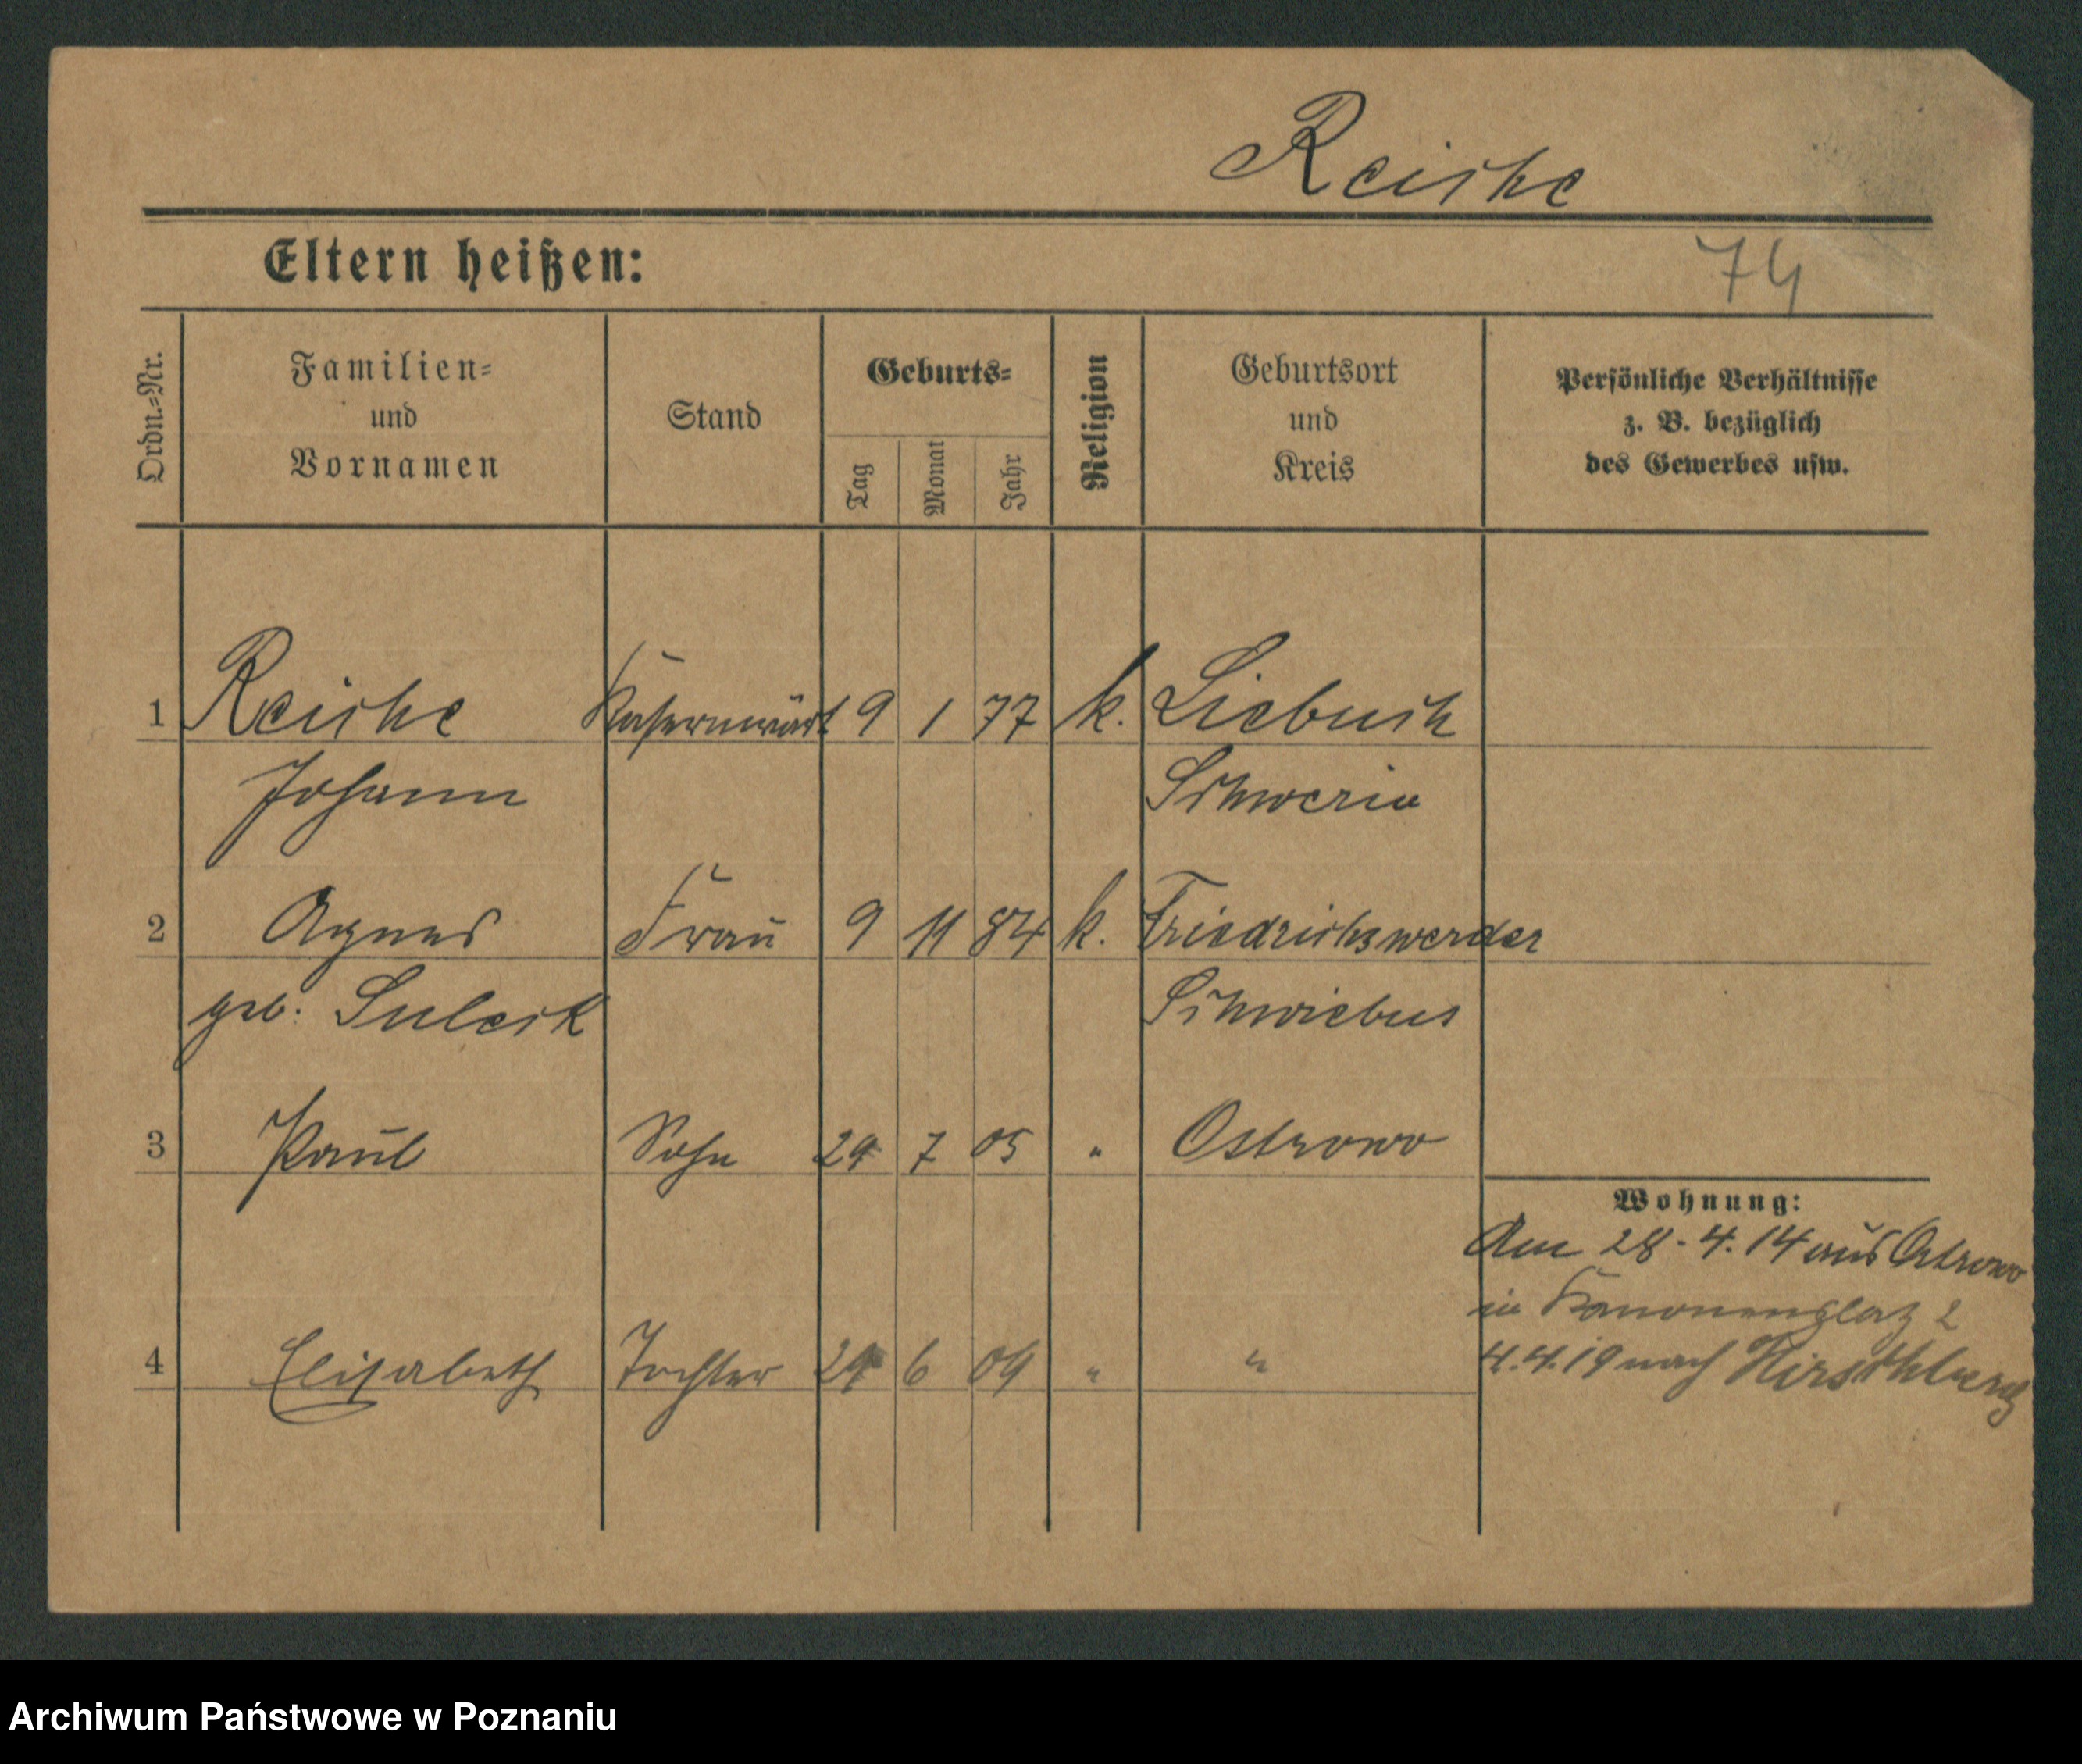 Reiche
Eltern heißen:
74
Ordn.-Nr.
Familien-
und
Vornamen
Stand
Geburts-
Tag
Monat
Jahr
Religion
Geburtsort
und
Kreis
Persönliche Verhältnisse
z. B. bezüglich
des Gewerbes usw.
1 Reiche Kasernwärt 9 1 77 k. Liebuch
Johann Schwerin
2 Agnes Frau 9 11 84 k. Friedrichswerder
geb. Schwiebus
3 Paul Sohn 24 7 05 " Ostrowo
Wohnung:
Am 28.4.14 aus Ostrowo
in Kanonenplatz 2
4 Elisabeth Tochter 24 6 09 " " 4.4.19 nach Hirschberg
Archiwum Państwowe w Poznaniu